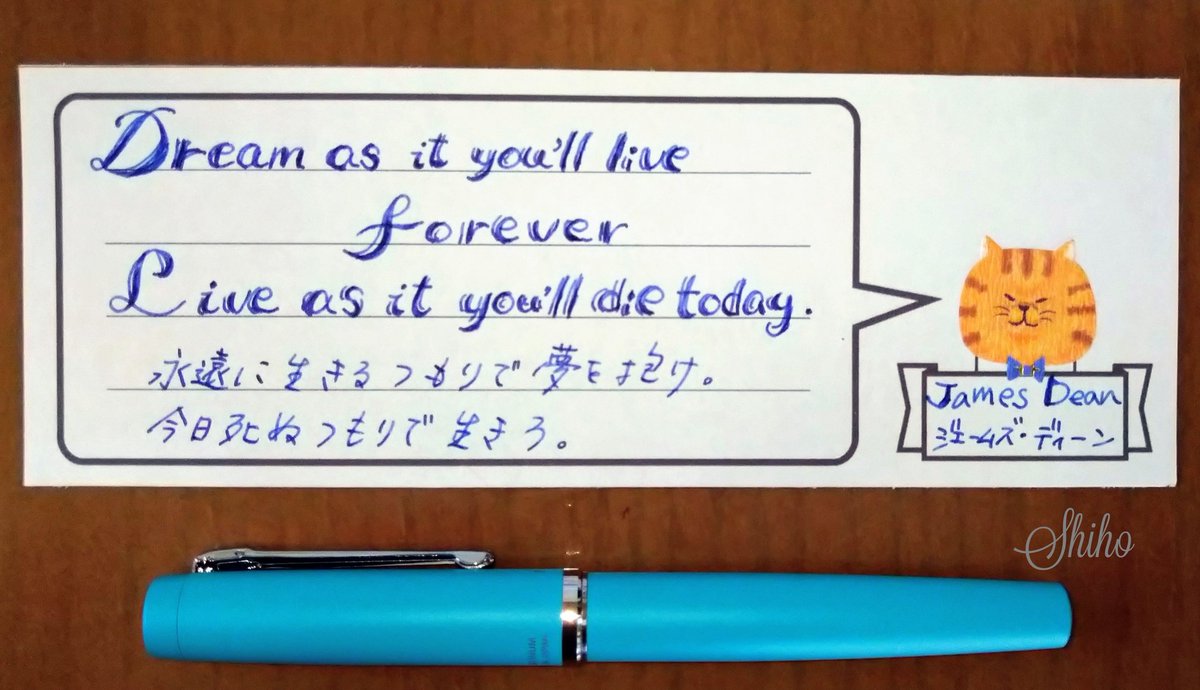 Dream as it you'll live
forever
Live as it you'll die today.
永遠に生きるつもりで夢を抱け。
今日死ぬつもりで生きろ。
James Dean
ジェームズ・ディーン
Shiho